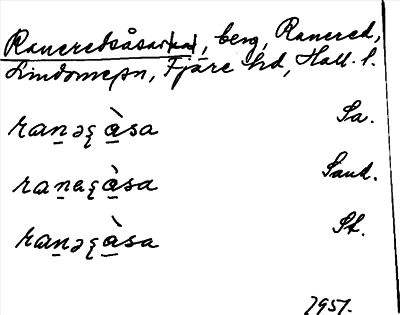 Raneredsåsar(na), berg, Ranered,
Lindomepn, Fjäre hd, Hall. l.
ranəȩàsa Sa.
ranaȩàsa Sand.
ranəȩàsa St.
1951.